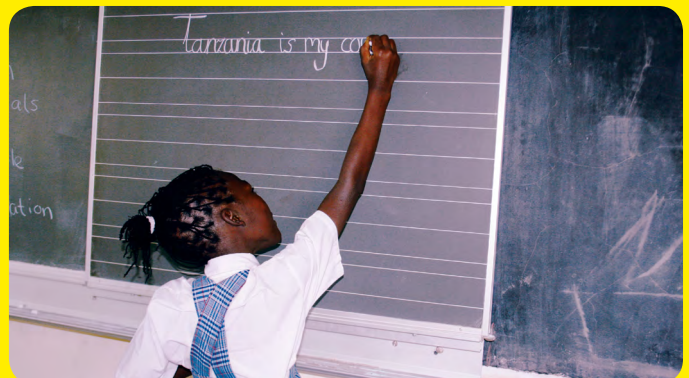 Tanzania is my
als
ation